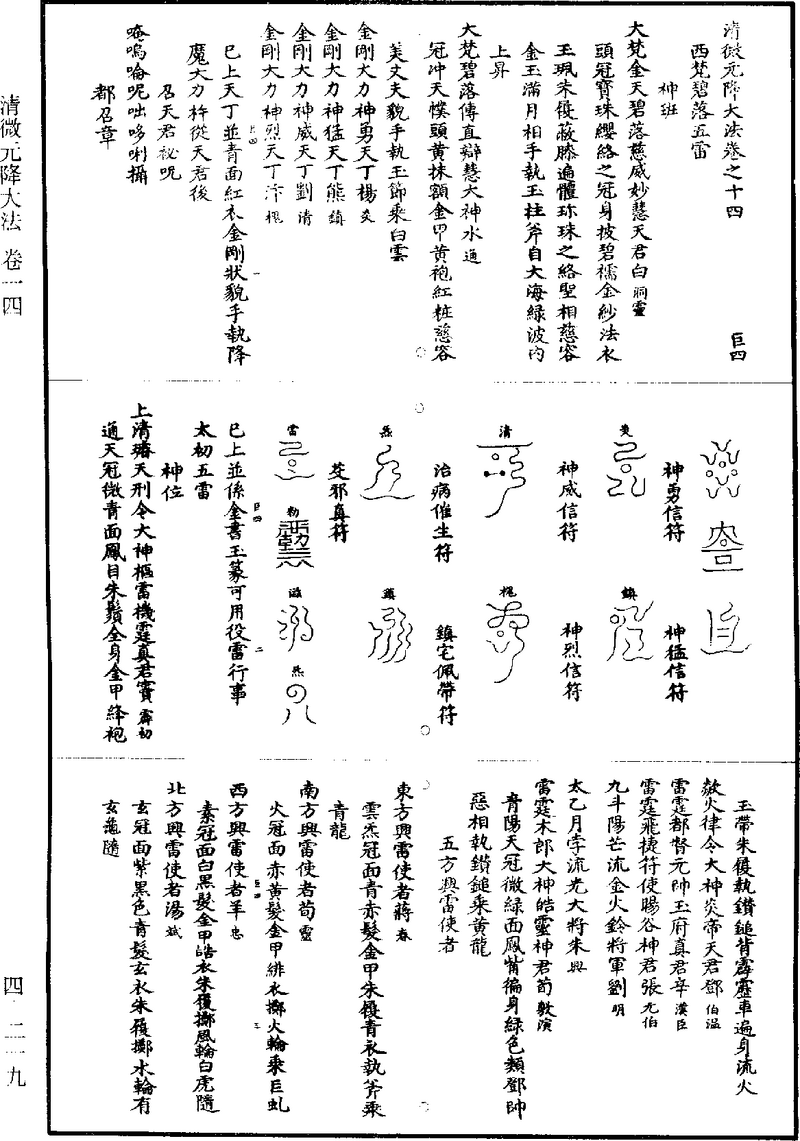 清微元降大法卷之十四　巨四
西梵碧落五雷
神班
大梵金天碧落慈威妙慧天君白洞靈
頭冠寶珠纓絡之冠身披碧襦金紗法衣
玉珮朱履蔽膝遍體珎珠之絡聖相慈容
金玉滿月相手執玉柱斧自大海綠波內
上昇
大梵碧落傳直辯慧大神水通
冠冲天幞頭黃抹額金甲黃袍紅桩慈容
美丈夫貌手執玉節乘白雲
金剛大力神勇天丁楊炎
金剛大力神猛天丁熊鎮
金剛大力神威天丁劉清
金剛大力神烈天丁汴
巳上天丁並青面紅衣金剛狀貌手執降
魔大力杵從天君後
召天君祕呪
唵嗚㖮呢咄哆唎攝
都召章
神勇信符
神猛信符
神威信符
神烈信符
治病催生符
鎮宅佩帶符
茭邪真符
巳上並係金書玉篆可用役雷行事
太初五雷
神位
上清璿天刑令大神樞雷機霆真君竇霹初
通天冠微青面鳳目朱鬚全身金甲絳袍
玉帶朱履執鑽鎚背霹靂車遍身流火
欻火律令大神炎帝天君鄧伯溫
雷霆都督元帥玉府真君辛漢臣
雷霆飛捷符使暘谷神君張元伯
九斗陽芒流金火鈴將軍劉明
太乙月孛流光大將朱興
雷霆木郎大神皓靈神君荀敷演
青陽天冠微綠面鳳觜徧身綠色類鄧帥
惡相執鑽鎚乘黃龍
五方興雷使者
東方興雷使者蔣春
雲炁冠面青赤髮金甲朱履青衣執斧乘
青龍
南方興雷使者荀靈
火冠面赤黃髮金甲緋衣擲火輪乘巨虬
西方興雷使者羊忠
素冠面白黑髮金甲皓衣朱履擲風輪白虎隨
北方興雷使者湯斌
玄冠面紫黑色青髮玄衣朱履擲水輪有
玄龜隨
清微元降大法　卷一四
四·二一九